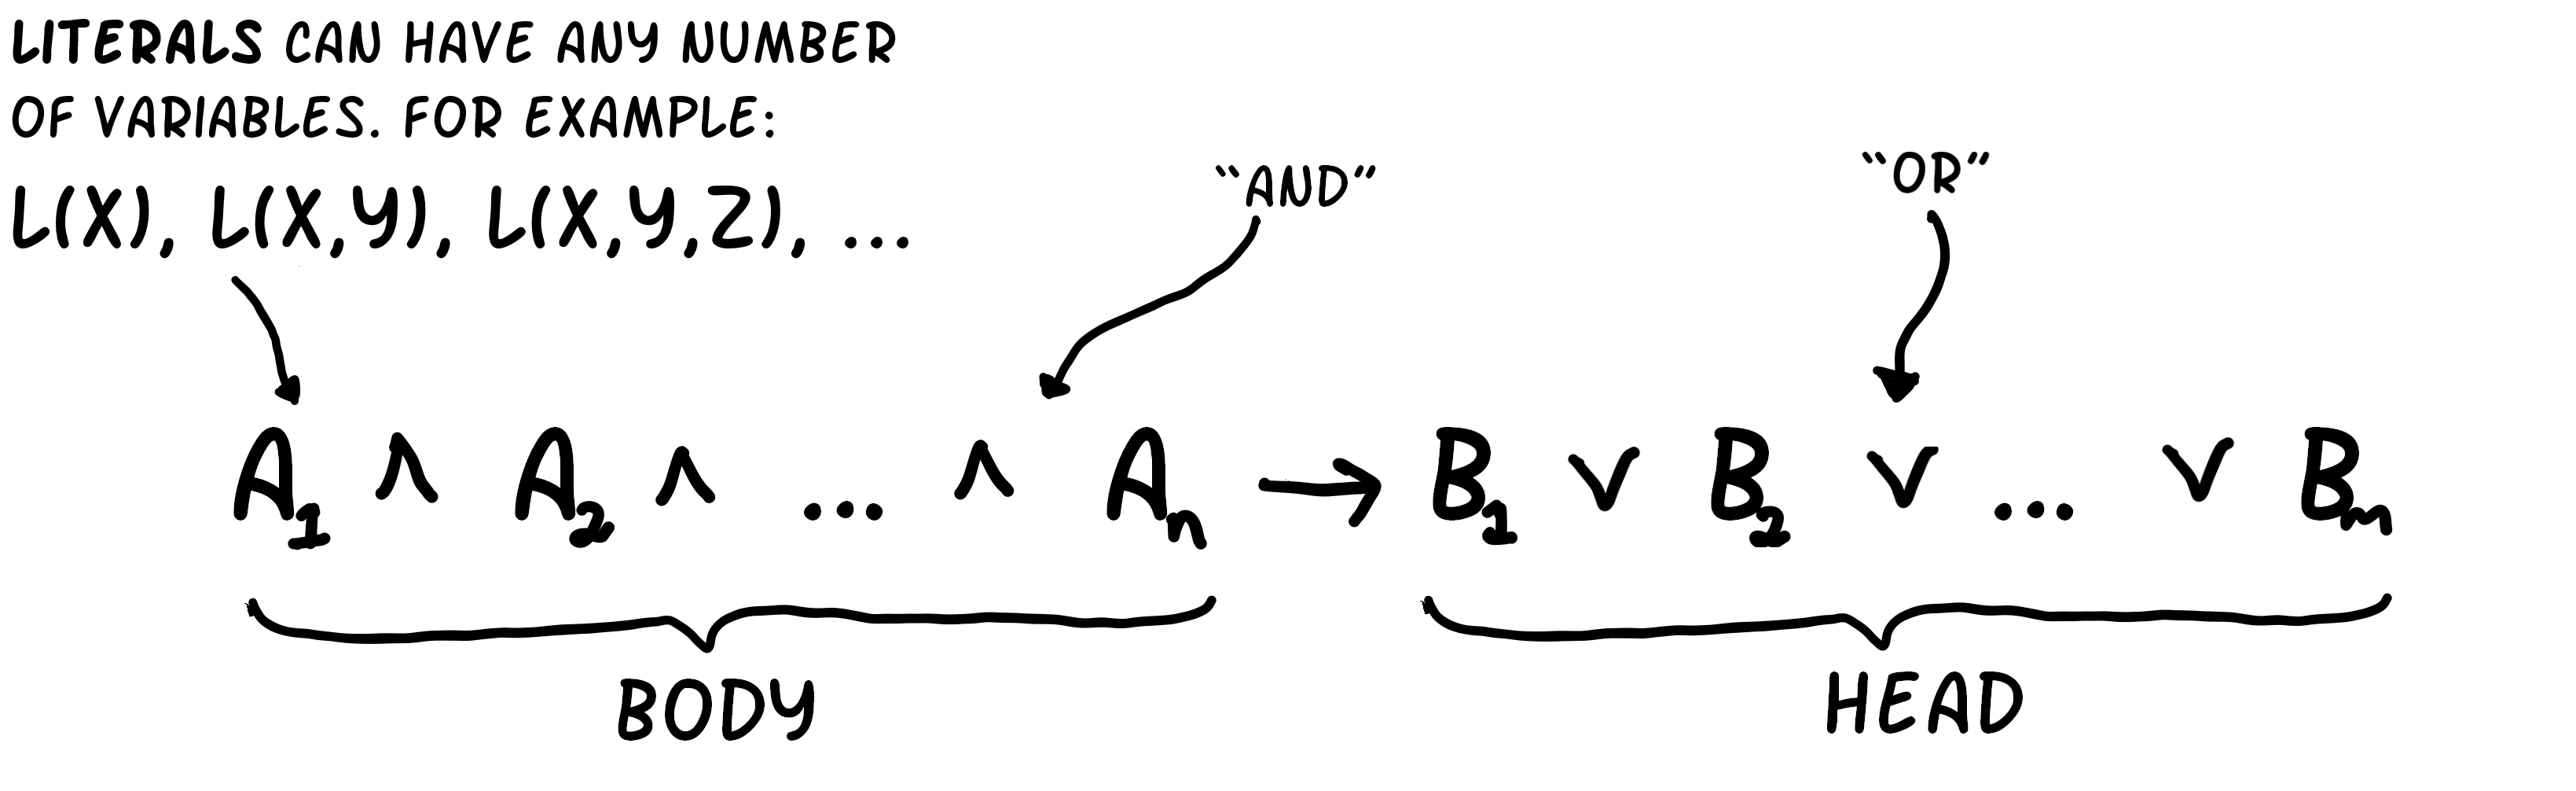 LITERALS CAN HAVE ANY NUMBER
OF VARIABLES. FOR EXAMPLE:
L(X), L(X,Y), L(X,Y,Z), ...
“AND”
“OR”
A₁ ∧ A₂ ∧ ... ∧ Aₙ → B₁ ∨ B₂ ∨ ... ∨ Bₘ
BODY
HEAD